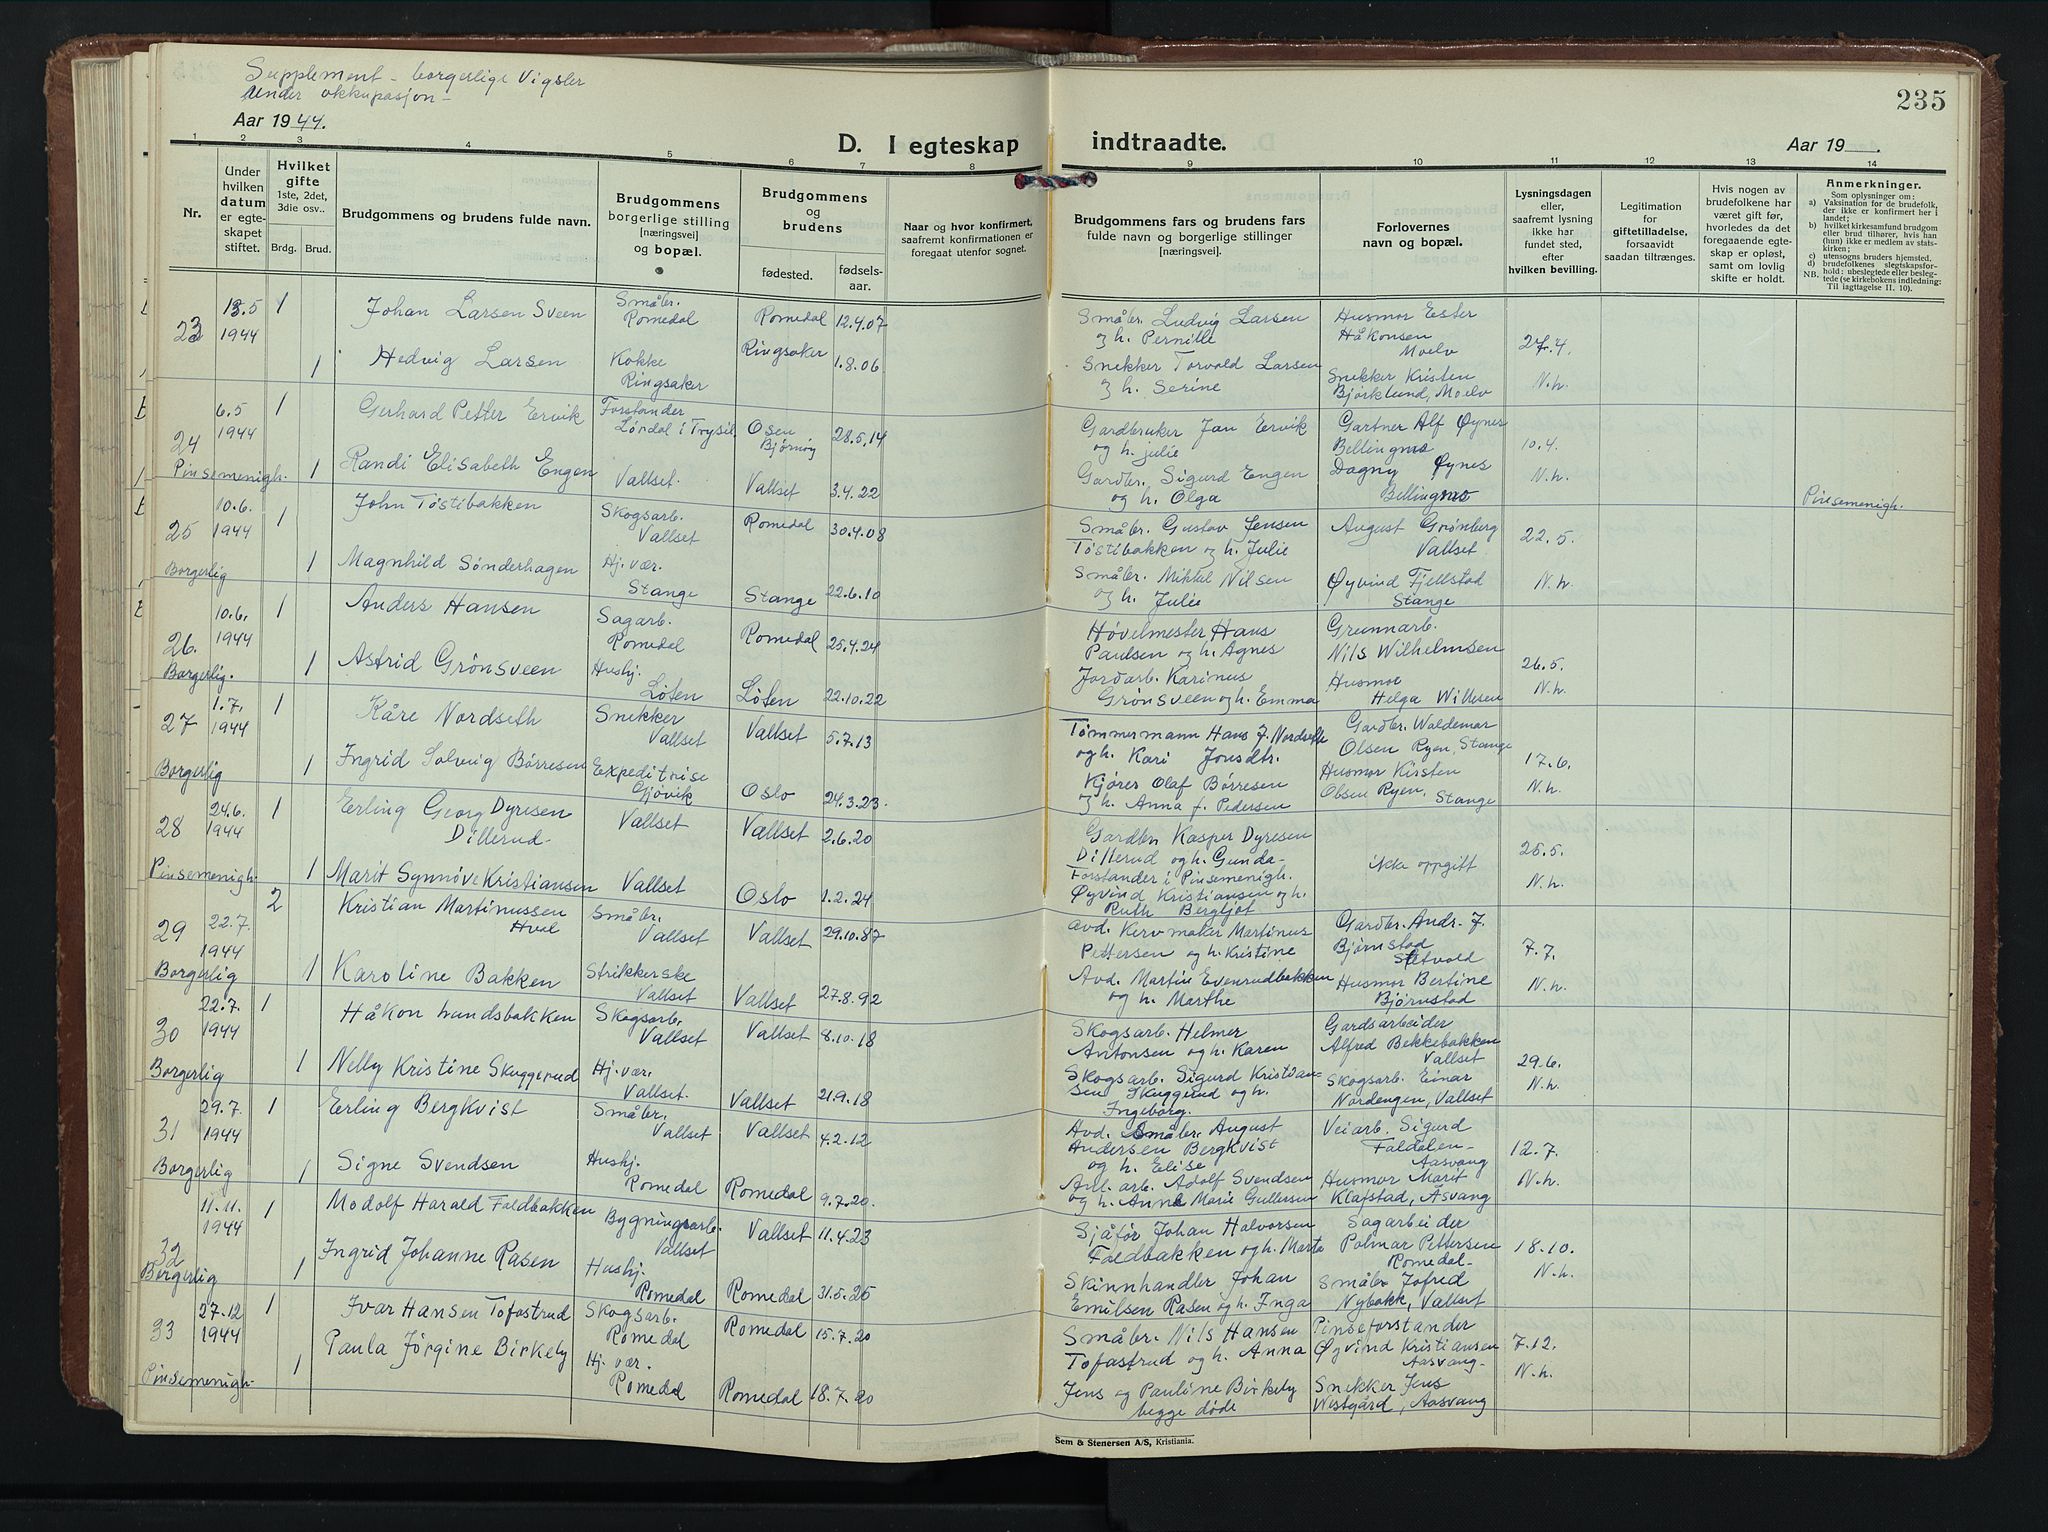 Supplement - borgerlige Vigsler
under okkupasjon -
Aar 1944.
D. I egteskap indtraadte.
Aar 19
235
1 2 3 4 5 6 7 8 9 10 11 12 13 14
Nr.
Under hvilken datum er egteskapet stiftet.
Hvilket gifte 1ste, 2det, 3die osv..
Brdg. Brud.
Brudgommens og brudens fulde navn.
Brudgommens borgerlige stilling [næringsvei] og bopæl.
Brudgommens og brudens
fødested. fødsels-aar.
Naar og hvor konfirmert, saafremt konfirmationen er foregaat utenfor sognet.
Brudgommens fars og brudens fars fulde navn og borgerlige stillinger [næringsvei].
Forlovernes navn og bopæl.
Lysningsdagen eller, saafremt lysning ikke har fundet sted, efter hvilken bevilling.
Legitimation for giftetilladelse, forsaavidt saadan tiltrænges.
Hvis nogen av brudefolkene har været gift før, hvorledes da det foregaaende egteskap er opløst, samt om lovlig skifte er holdt.
Anmerkninger.
Som oplysninger om:
a) Vaksination for de brudefolk, der ikke er konfirmert her i landet;
b) hvilket kirkesamfund brudgom eller brud tilhører, hvis han (hun) ikke er medlem av statskirken;
c) utensogns bruders hjemsted.
d) brudefolkenes slegtskapsforhold: ubeslegtede eller beslegtede (se kirkebokens indledning: Til iagttagelse II. 10).
NB.
23 13.5 1944 1 Johan Larsen Sveen Småbr. Romedal Romedal 12.4.07 Småbr. Ludvig Larsen og h. Pernille Husmor Ester Håkonsen Moelv 27.4.
1 Hedvig Larsen Kokke Ringsaker Ringsaker 1.8.06 Snekker Torvald Larsen og h. Serine Snekker Kristen Bjørklund, Moelv N.h.
24 6.5 1944 1 Gerhard Petter Ervik Forstander Lørdal i Trysil Osen Bjørnør 28.5.14 Gardbruker Jan Ervik og h. Julie Gartner Alf Øynes Bellingmo 10.4.
Pinsemenigh. 1 Randi Elisabeth Engen Vallset. Vallset 3.4.22 Gardbr. Sigurd Engen og h. Olga Dagny Øynes Bellingmo N.h. Pinsemenigh.
25 10.6. 1944 1 John Tøstibakken Skogsarb. Vallset Romedal 30.4.08 Småbr. Gustav Jensen Tøstibakken og h. Julie August Grønberg Vallset 22.5.
Borgerlig 1 Magnhild Sønderhagen Hj.vær. Stange Stange 22.6.10 Småbr. Mikkel Nilsen og h. Julie Øyvind Fjellstad Stange N.h.
26. 10.6. 1944 1 Anders Hansen Sagarb. Romedal Romedal 25.4.24 Høvelmester Hans Paulsen og h. Agnes Grunnarb. Nils Wilhelmsen 26.5.
Borgerlig. 1 Astrid Grønsveen Hushj. Løten Løten 22.10.22 Jordarb. Karinus Grønsveen og h. Emma Husmor Helga Willesen N.h.
27 1.7. 1944 1 Kåre Nordseth Snekker Vallset Vallset 5.7.13 Tømmermann Hans J. Nordseth og h. Kari Jonsdtr. Gardbr. Waldemar Olsen Ryen, Stange 17.6.
Borgerlig 1 Ingrid Solveig Børresen Expeditrise Gjøvik Oslo 24.3.23. Kjører Olaf Børresen og h. Anna f. Pedersen Husmor Kirsten Olsen Ryen, Stange N.h.
28 24.6. 1944 1 Erling Georg Dyresen Dillerud- Vallset Vallset 2.6.20 Gardbr Kasper Dyresen Dillerud og h. Gunda- ikke oppgitt 25.5.
Pinsemenigh. 1 Marit Synnøve Kristiansen Vallset Oslo 1.2.24 Forstander i Pinsemenigh. Øyvind Kristiansen og h. Ruth Bergljot N.h.
29 22.7. 1944 2 Kristian Martinussen Hval Småbr. Vallset Vallset 29.10.87 avd. Kurvmaker Martinus Pettersen og h. Kristine Gardbr. Andr. J. Bjørnstad 7.7.
Borgerlig 1 Karoline Bakken Strikkerske Vallset Vallset 27.8.92 Avd. Martin Evenrudbakken og h. Marthe Husmor Bertine Bjørnstad N.h.
30 22.7. 1944 1 Håkon Lundsbakken Skogsarb. Vallset Vallset 8.10.18 Skogsarb. Helmer Antonsen og h. Karen Gardsarbeider Alfred Bekkebakken Vallset 29.6.
Borgerlig 1 Nelly Kristine Skuggerud Hj.vær. Vallset. Vallset 21.9.18 Skogsarb. Sigurd Kristiansen Skuggerud og h. Ingeborg. Skogsarb. Einar Nordengen, Vallset N.h.
31 29.7. 1944 1 Erling Bergkvist Småbr. Vallset Vallset 4.2.12 Avd. Småbr. August Andersen Bergkvist og h. Elise Veiarb. Sigurd Faldalen- Aasvang 12.7.
Borgerlig 1 Signe Svendsen Hushj. Romedal Romedal 9.7.20. Anl. arb. Adolf Svendsen og h. Anne Marie Gullersen Husmor Marit Klafstad, Åsvang N.h.
32 11.11. 1944 1 Modolf Harald Faldbakken Bygningsarb. Vallset Vallset 11.4.23 Sjåfør Johan Halvorsen Faldbakken og h. Marta Sagarbeider Palmar Pettersen Romedal- 18.10.
Borgerlig 1 Ingrid Johanne Rasen Hushj. Romedal Romedal 31.5.25 Skinnhandler Johan Emilsen Rasen og h. Inga Småbr Jofred Nybakk, Vallset N.h.
33 27.12 1944 1 Ivar Hansen Tofastrud Skogsarb. Romedal Romedal 15.7.20 Småbr. Nils Hansen Tofastrud og h. Anna Pinseforstander Øyvind Kristiansen Aasvang- 7.12.
Pinsemenigh- 1 Paula Jørgine Birkely Hj.vær. Romedal Romedal 18.7.20 Jens og Pauline Birkely begge døde Snekker Jens Westgård, Aasvang N.h.
Sem & Stenersen A/S, Kristiania.